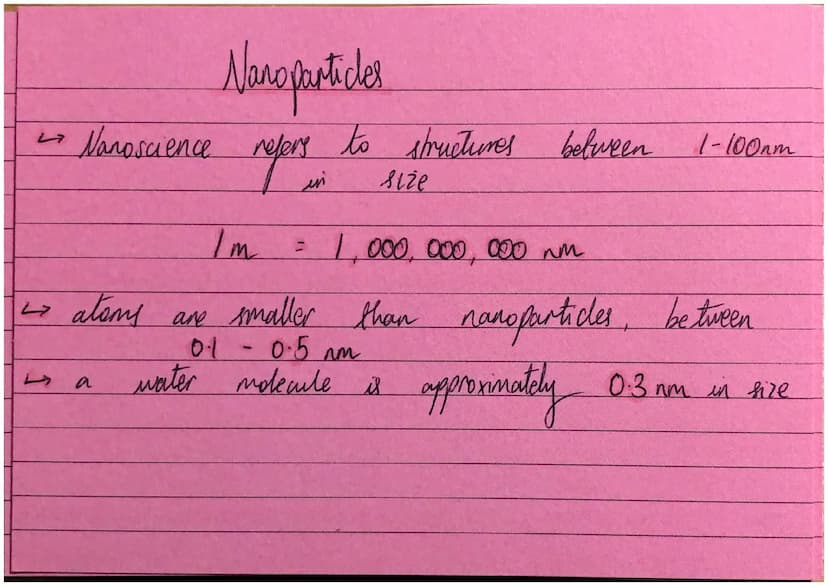 Nanoparticles
↳ Nanoscience refers to structures between 1-100nm
in size
1m = 1,000,000,000 nm
↳ atoms are smaller than nanoparticles, between
0.1 - 0.5 nm
↳ a water molecule is approximately 0.3 nm in size